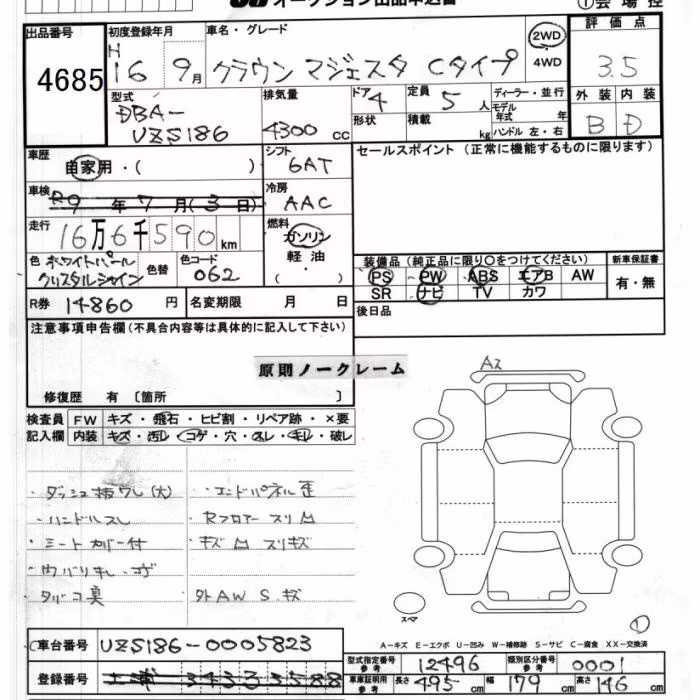 オークション出品申込書
①会場控
出品番号 4685
初度登録年月 H 16 9月
車名・グレード クラウン マジェスタ Cタイプ
2WD
4WD
評価点 3.5
外装 内装
B D
型式 DBA-
UZS186
排気量 4300 cc
ドア 4
形状
定員 5 人
積載 kg
ディーラー・並行
モデル年式 年
ハンドル 左・右
車歴 自家用・( )
シフト 6AT
セールスポイント (正常に機能するものに限ります)
車検 R9年7月(3日)
冷房 AAC
走行 16万6千590km
燃料 ガソリン
軽油
・( )
色 ホワイトパール
クリスタルシャイン
色替
色コード 062
装備品 (純正品に限り○をつけてください)
PS PW ABS エアB AW
SR ナビ TV カワ
新車保証書
有・無
R券 14860 円
名変期限 月 日
後日品
注意事項申告欄(不具合内容等は具体的に記入して下さい)
原則ノークレーム
修復歴 有 〔箇所 〕
検査員記入欄
FW キズ・飛石・ヒビ割・リペア跡・×要
内装 キズ・汚レ・コゲ・穴・スレ・キレ・破レ
A2
・ダッシュ板ワレ(大)
・ハンドルスレ
・シートカバー付
・ウバリキレ・コゲ
・タバコ臭
・エンドパネル歪
・Rフロアースリ凹
・キズ凹スリキズ
・外AW S.キズ
スペア
①
A-キズ E-エクボ U-凹み W-補修跡 S-サビ C-腐食 XX-交換済
車台番号 UZS186-0005823
登録番号 土浦
型式指定番号 参考 12496
類別区分番号 参考 0001
車庫証明用 参考 長さ 495cm 幅 179cm 高さ 146cm